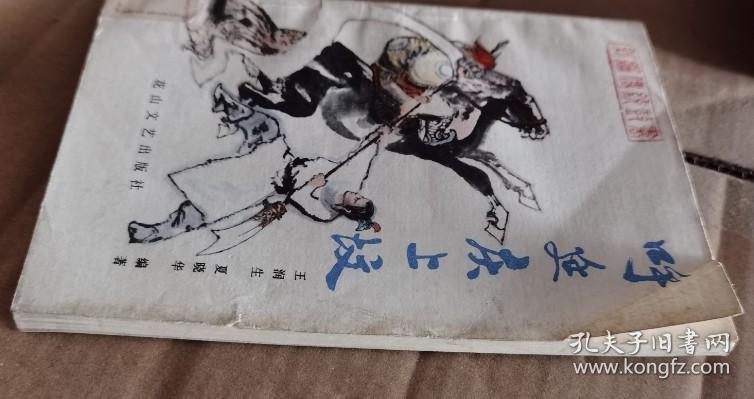 新編傳統評書
呼延庆上坟
王润生 夏晓华 编著
花山文艺出版社
孔夫子旧书网
www.kongfz.com